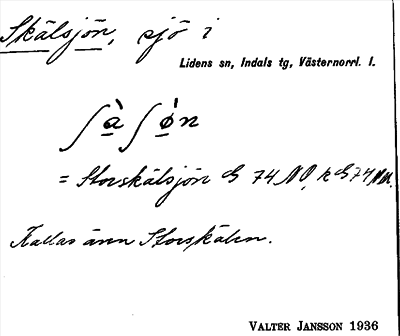 Skälsjön, sjö i
Lidens sn, Indals tg, Västernorrl. l.
ʃàʃø̀n
= Storskälsjön G 74 NO, k G 74
Kallas även Storskälen.
VALTER JANSSON 1936